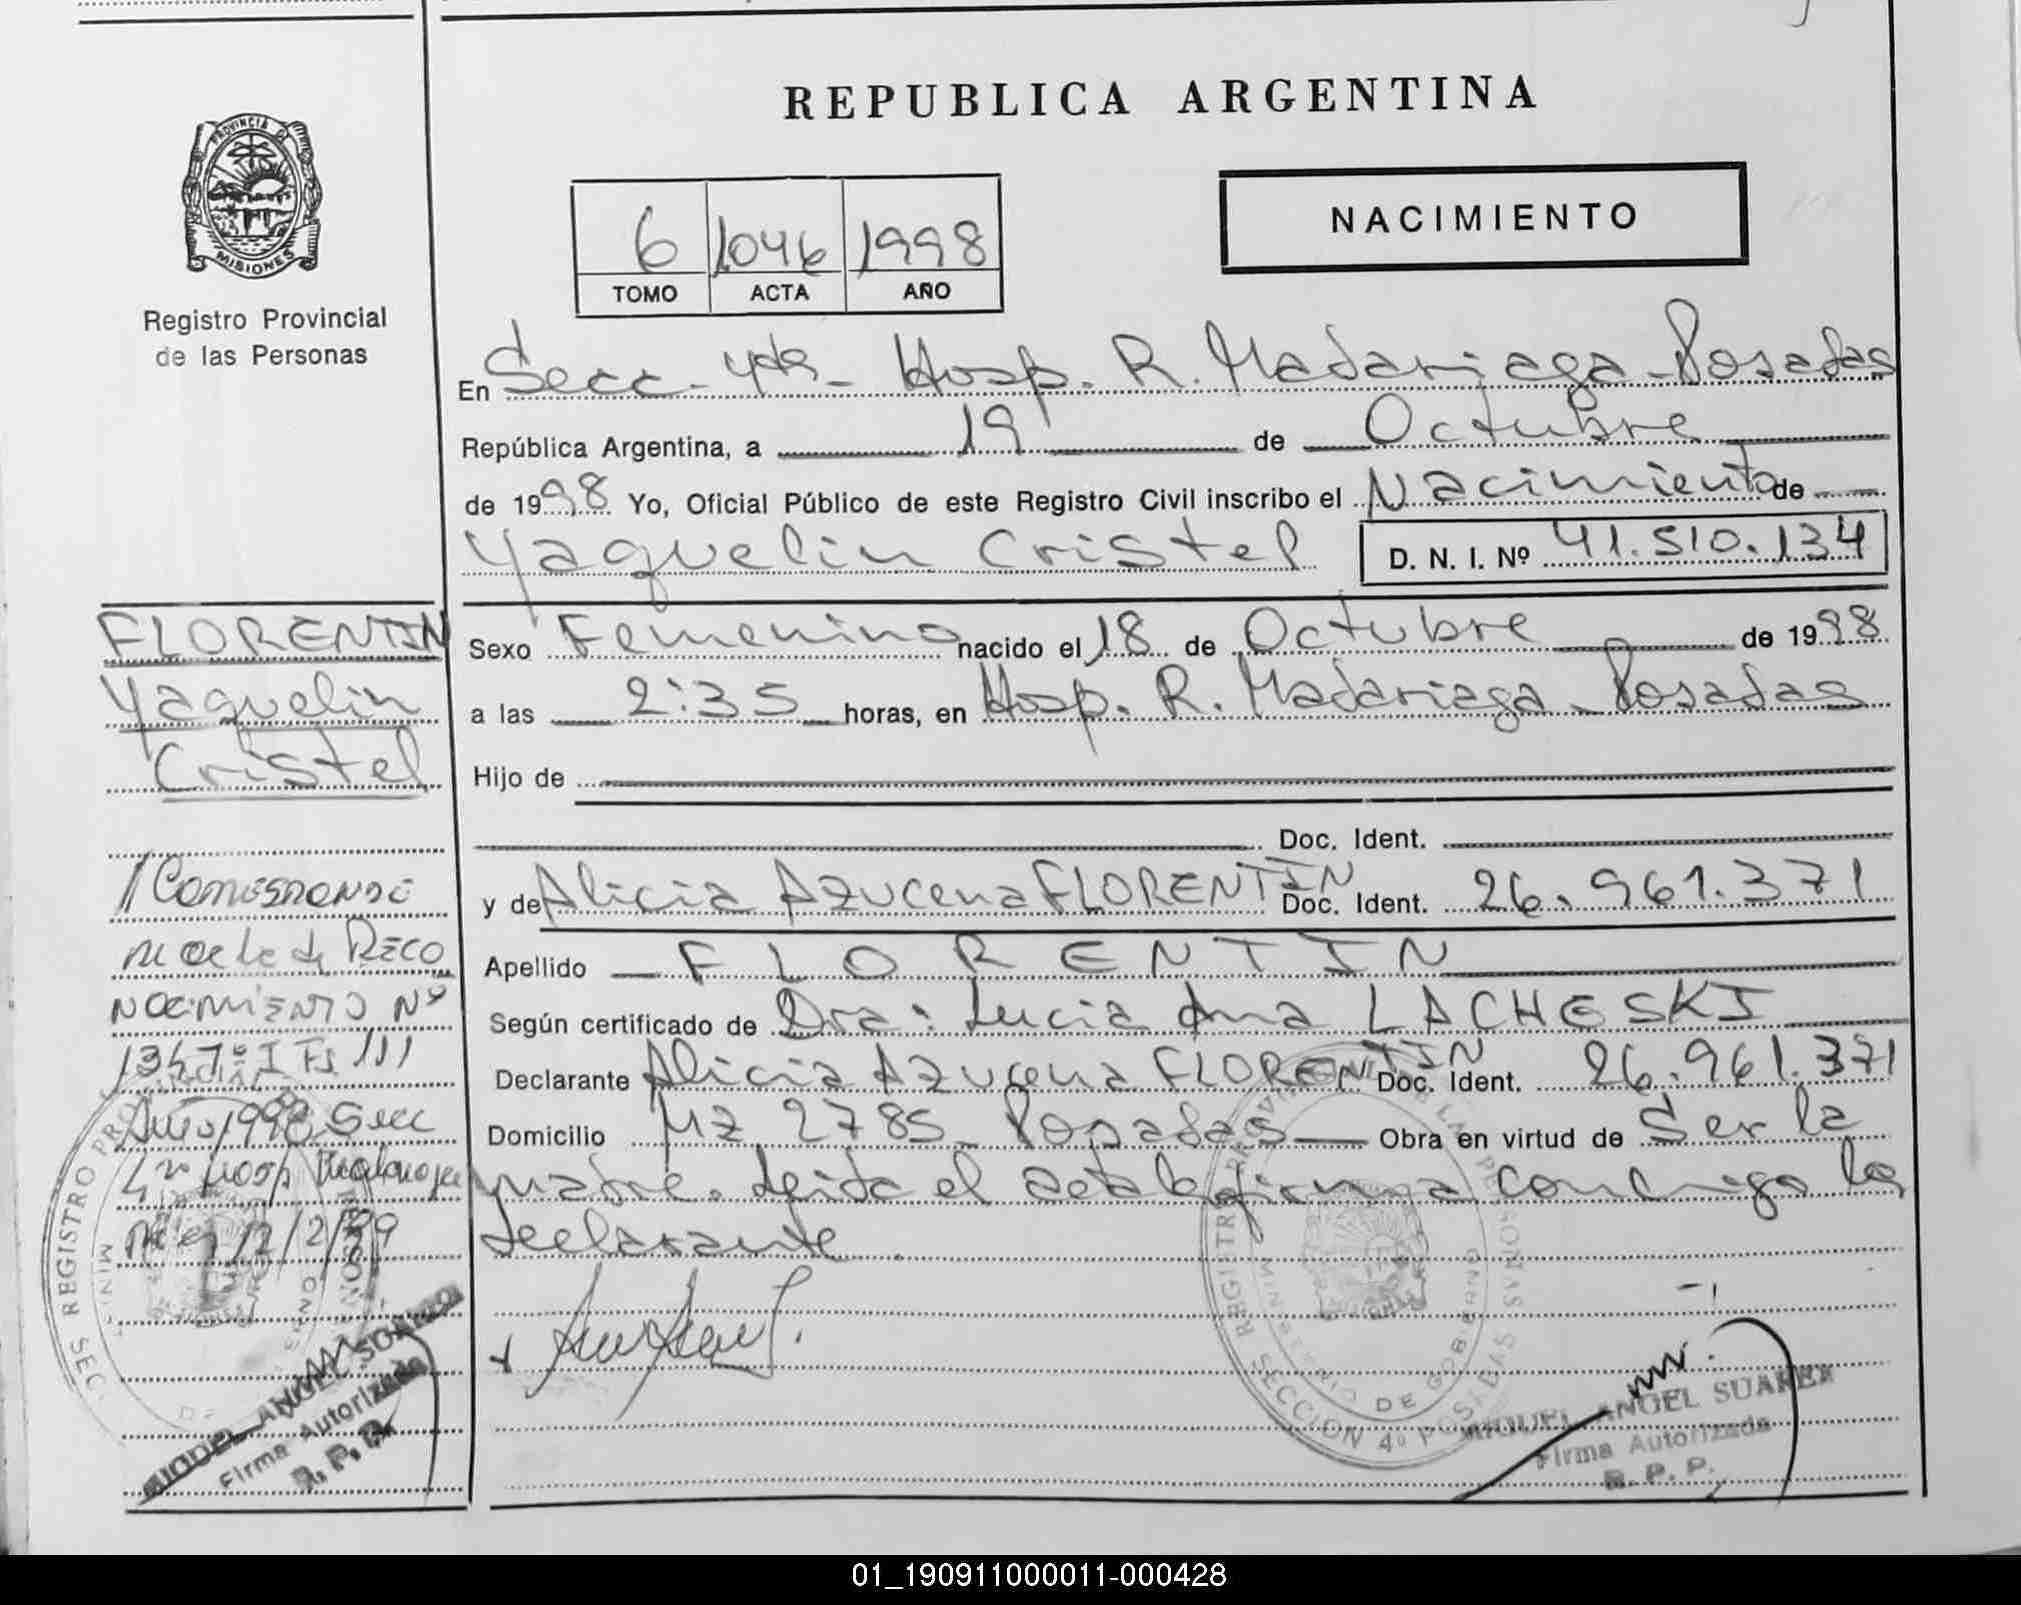 REPUBLICA ARGENTINA
PROVINCIA DE
MISIONES
Registro Provincial
de las Personas
NACIMIENTO
6 1046 1998
TOMO ACTA AÑO
En Secc. 4ta - Hosp. R. Madariaga - Posadas
República Argentina, a 19 de Octubre
de 1998 Yo, Oficial Público de este Registro Civil inscribo el Nacimiento de
Yaquelin Cristel D. N. I. Nº 41.510.134
Sexo Femenino nacido el 18 de Octubre de 1998
a las 2:35 horas, en Hosp. R. Madariaga - Posadas
Hijo de
Doc. Ident.
y de Alicia Azucena FLORENTIN Doc. Ident. 26.961.371
Apellido FLORENTIN
Según certificado de Dra: Lucia Ana LACHESKI
Declarante Alicia Azucena FLORENTIN Doc. Ident. 26.961.371
Domicilio Mz 2785 - Posadas Obra en virtud de Ser la
madre. Leida el acta la firma conmigo la
declarante.
FLORENTIN
Yaquelin
Cristel
Corresponde
acta de Reco
nocimiento Nº
134 Tº I Fs 111
Año 1998 Secc
4ta Hosp Madariaga
12/2/99
MIGUEL ANGEL SUAREZ
Firma Autorizada
R. P. P.
REGISTRO PROVINCIAL DE LAS PERSONAS
MINISTERIO DE GOBIERNO
SECCION 4º POSADAS
MIGUEL ANGEL SUAREZ
Firma Autorizada
R. P. P.
01_190911000011-000428